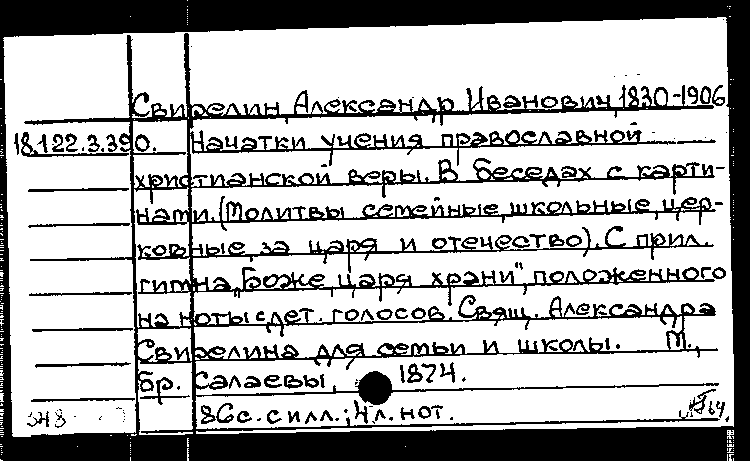 Свирелин, Александр Иванович, 1830-1906.
18.122.3.390. Начатки учения православной
христианской веры. В беседах с карти-
нами. (Молитвы семейные, школьные, цер-
ковные, за царя и отечество). С прил.
гимна „Боже, царя храни", положенного
на ноты с дет. голосов. Свящ. Александра
Свирелина для семьи и школы. М.,
бр. Салаевы, 1874.
86 с. с илл.; 4 л. нот.